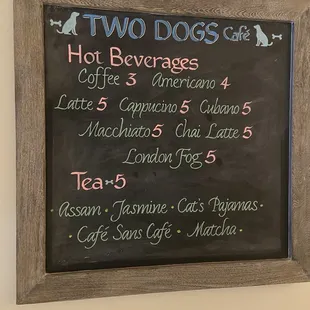 TWO DOGS Café
Hot Beverages
Coffee 3 Americano 4
Latte 5 Cappucino 5 Cubano 5
Macchiato 5 Chai Latte 5
London Fog 5
Tea 5
· Assam · Jasmine · Cat's Pajamas ·
· Café Sans Café · Matcha ·